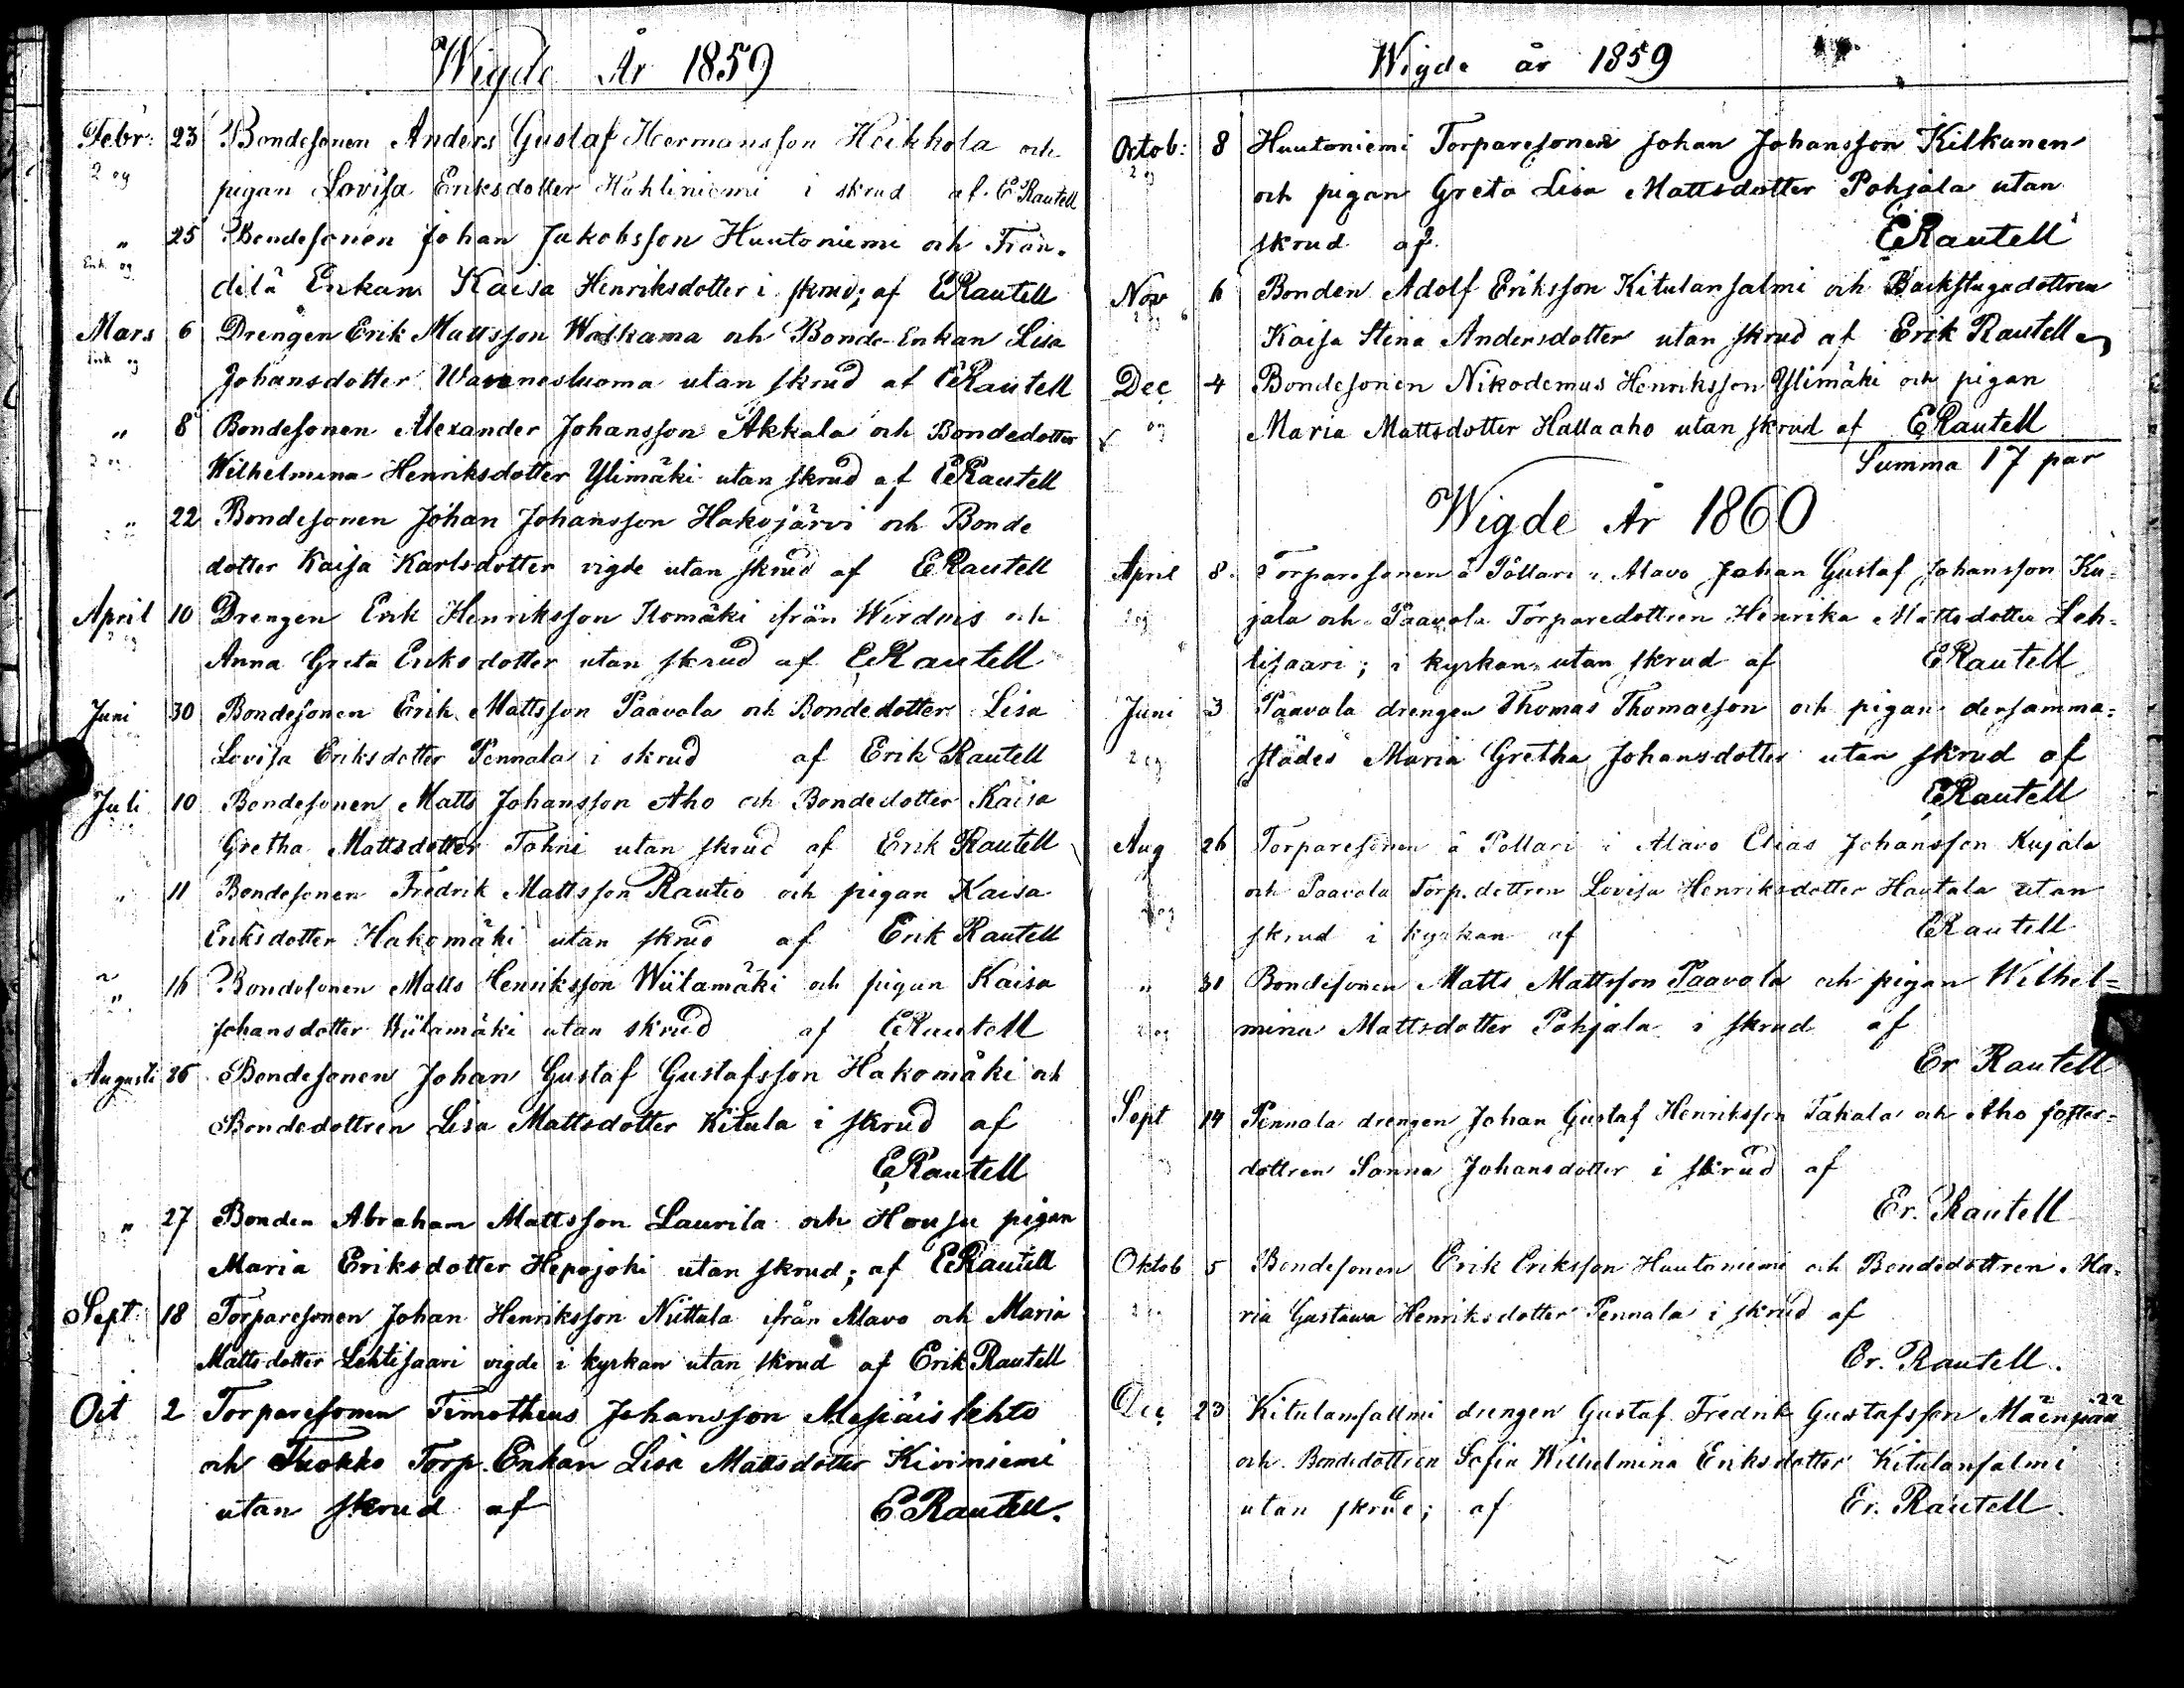 Wigde År 1859
Febr: 23 Bondesonen Anders Gustaf Hermansson Heikkola och
2 og pigan Lovisa Eriksdotter Kuhliniemi i skrud af E Rautell
" 25 Bondesonen Johan Jakobsson Huutoniemi och Fran-
Enk og dilä Enkan Kaisa Henriksdotter i skrud; af ERautell
Mars 6 Drengen Erik Mattsson Watkama och Bonde-Enkan Lisa
Enk og Johansdotter Wannesluoma utan skrud af ERautell
" 8 Bondesonen Alexander Johansson Akkala och Bondedotter
2 og Wilhelmina Henriksdotter Ylimäki utan skrud af ERautell
" 22 Bondesonen Johan Johansson Hakojärvi och Bonde
dotter Kaisa Karlsdotter vigde utan skrud af ERautell
April 10 Drengen Erik Henriksson Itomäki ifrån Wirdois och
Anna Greta Eriksdotter utan skrud af ERautell
Juni 30 Bondesonen Erik Mattsson Paavola och Bondedotter Lisa
Lovisa Eriksdotter Pennala i skrud af Erik Rautell
Juli 10 Bondesonen Matts Johansson Aho och Bondedotter Kaisa
Gretha Mattsdotter Tohni utan skrud af Erik Rautell
" 11 Bondesonen Fredrik Mattsson Rautio och pigan Kaisa
Eriksdotter Hakomäki utan skrud af Erik Rautell
" 16 Bondesonen Matts Henriksson Wiitamäki och pigan Kaisa
Johansdotter Wiitamäki utan skrud af ERautell
Augusti 26 Bondesonen Johan Gustaf Gustafsson Hakomäki och
Bondedottren Lisa Mattsdotter Kitula i skrud af
ERautell
" 27 Bonden Abraham Mattsson Laurila och Housu pigan
Maria Eriksdotter Hepojoki utan skrud; af ERautell
Sept: 18 Torparesonen Johan Henriksson Niittula ifrån Alavo och Maria
Mattsdotter Lehtisaari vigde i kyrkan utan skrud af Erik Rautell
Oct 2 Torparesonen Timotheus Johansson Mesiäislehto
och Tuokko Torp. Enkan Lisa Mattsdotter Kiviniemi
utan skrud af E Rautell.
Wigde år 1859
Octob: 8 Huutoniemi Torparesonen Johan Johansson Kilkunen
2 og och pigan Greta Lisa Mattsdotter Pohjala utan
skrud af ERautell
Nov 6 Bonden Adolf Eriksson Kitulansalmi och Backstugudottren
2 og Kaisa Stina Andersdotter utan skrud af Erik Rautell
Dec 4 Bondesonen Nikodemus Henriksson Ylimäki och pigan
og Maria Mattsdotter Hallaaho utan skrud af ERautell
Summa 17 par
Wigde År 1860
April 8. Torparesonen å Pollari i Alavo Johan Gustaf Johansson Ku-
2 og jala och Paavola Torparedottren Henrika Mattsdotter Leh-
tisaari; i kyrkan utan skrud af ERautell
Juni 3 Paavala drengen Thomas Thomasson och pigan dersamma-
2 og städes Maria Gretha Johansdotter utan skrud af
ERautell
Aug 26 Torparesonen å Pollari i Alavo Elias Johansson Kujala
och Paavola Torp. dottren Lovisa Henriksdotter Hautala utan
2 og skrud i kyrkan af ERautell
" 31 Bondesonen Matts Mattsson Paavola och pigan Wilhel-
2 og mina Mattsdotter Pohjala i skrud af
Er Rautell
Sept 14 Pennala drengen Johan Gustaf Henriksson Takala och Aho foster-
dottren Sanna Johansdotter i skrud af
Er. Rautell
Oktob 5 Bondesonen Erik Eriksson Huutoniemi och Bondedottren Ma-
2 og ria Gustava Henriksdotter Pennala i skrud af
Er. Rautell.
Dec 23 Kitulansallmi drengen Gustaf Fredrik Gustafsson Mäenpää
och Bondedottren Sofia Wilhelmina Eriksdotter Kitulansalmi
utan skrud; af Er. Rautell.